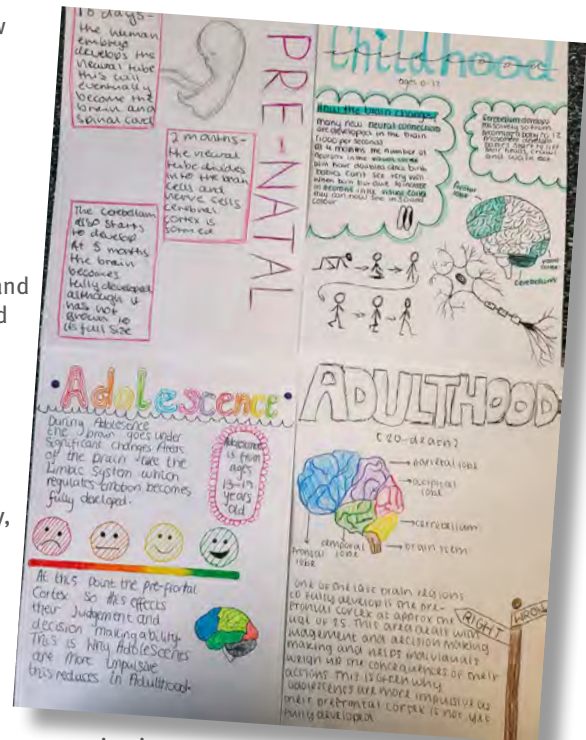 and
PRE-NATAL
10 days-
the human
embryo
develops the
neural tube
this will
eventually
become the
brain and
spinal cord
2 months-
the neural
tube divides
into the brain
cells and
nerve cells
cerebral
cortex is
formed
The cerebellum
also starts
to develop
At 5 months
the brain
becomes
fully developed
although it
has not
grown to
its full size
Childhood
ages 0-12
How the brain changes
many new neural connections
are developed in the brain
(1000 per second)
at 4 months the number of
neurons in the visual cortex
have doubled since birth
babies can't see very well
when born but due to increase
of neurons in the visual cortex
they can now see in 3D and
colour
Cerebellum develops
so from
to 12
movement
babies start to lift
their head, crawl
and walk etc
frontal
lobe
cerebellum
Adolescence
During Adolescence
the brain goes under
significant changes Areas
of the brain like the
Limbic System which
regulates emotion becomes
fully
Adolescence
is from
ages
13-19
years
old
At this point the pre-frontal
Cortex so this affects
their Judgement and
decision making ability
This is why Adolescences
are more impulsive
this reduces in Adulthood.
ADULTHOOD
(20-death)
parietal lobe
occipital
lobe
cerebellum
brain stem
temporal
lobe
frontal
lobe
one of the last brain regions
to fully develop is the pre-
frontal cortex at approx the
age of 25. This area deals with
judgement and decision making
making and helps individuals
weigh up the consequences of their
actions this is often why
adolescents are more impulsive as
their prefrontal cortex is not yet
fully developed
RIGHT
WRONG